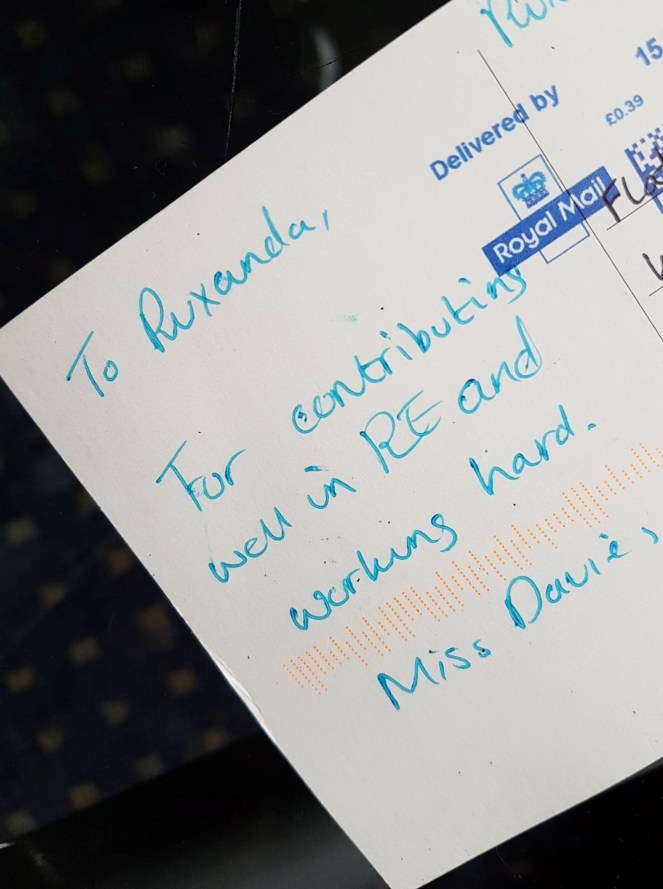 Delivered by
15
£0.39
Royal Mail
To Ruxanda,
For contributing
well in RE and
working hard.
Miss Davies